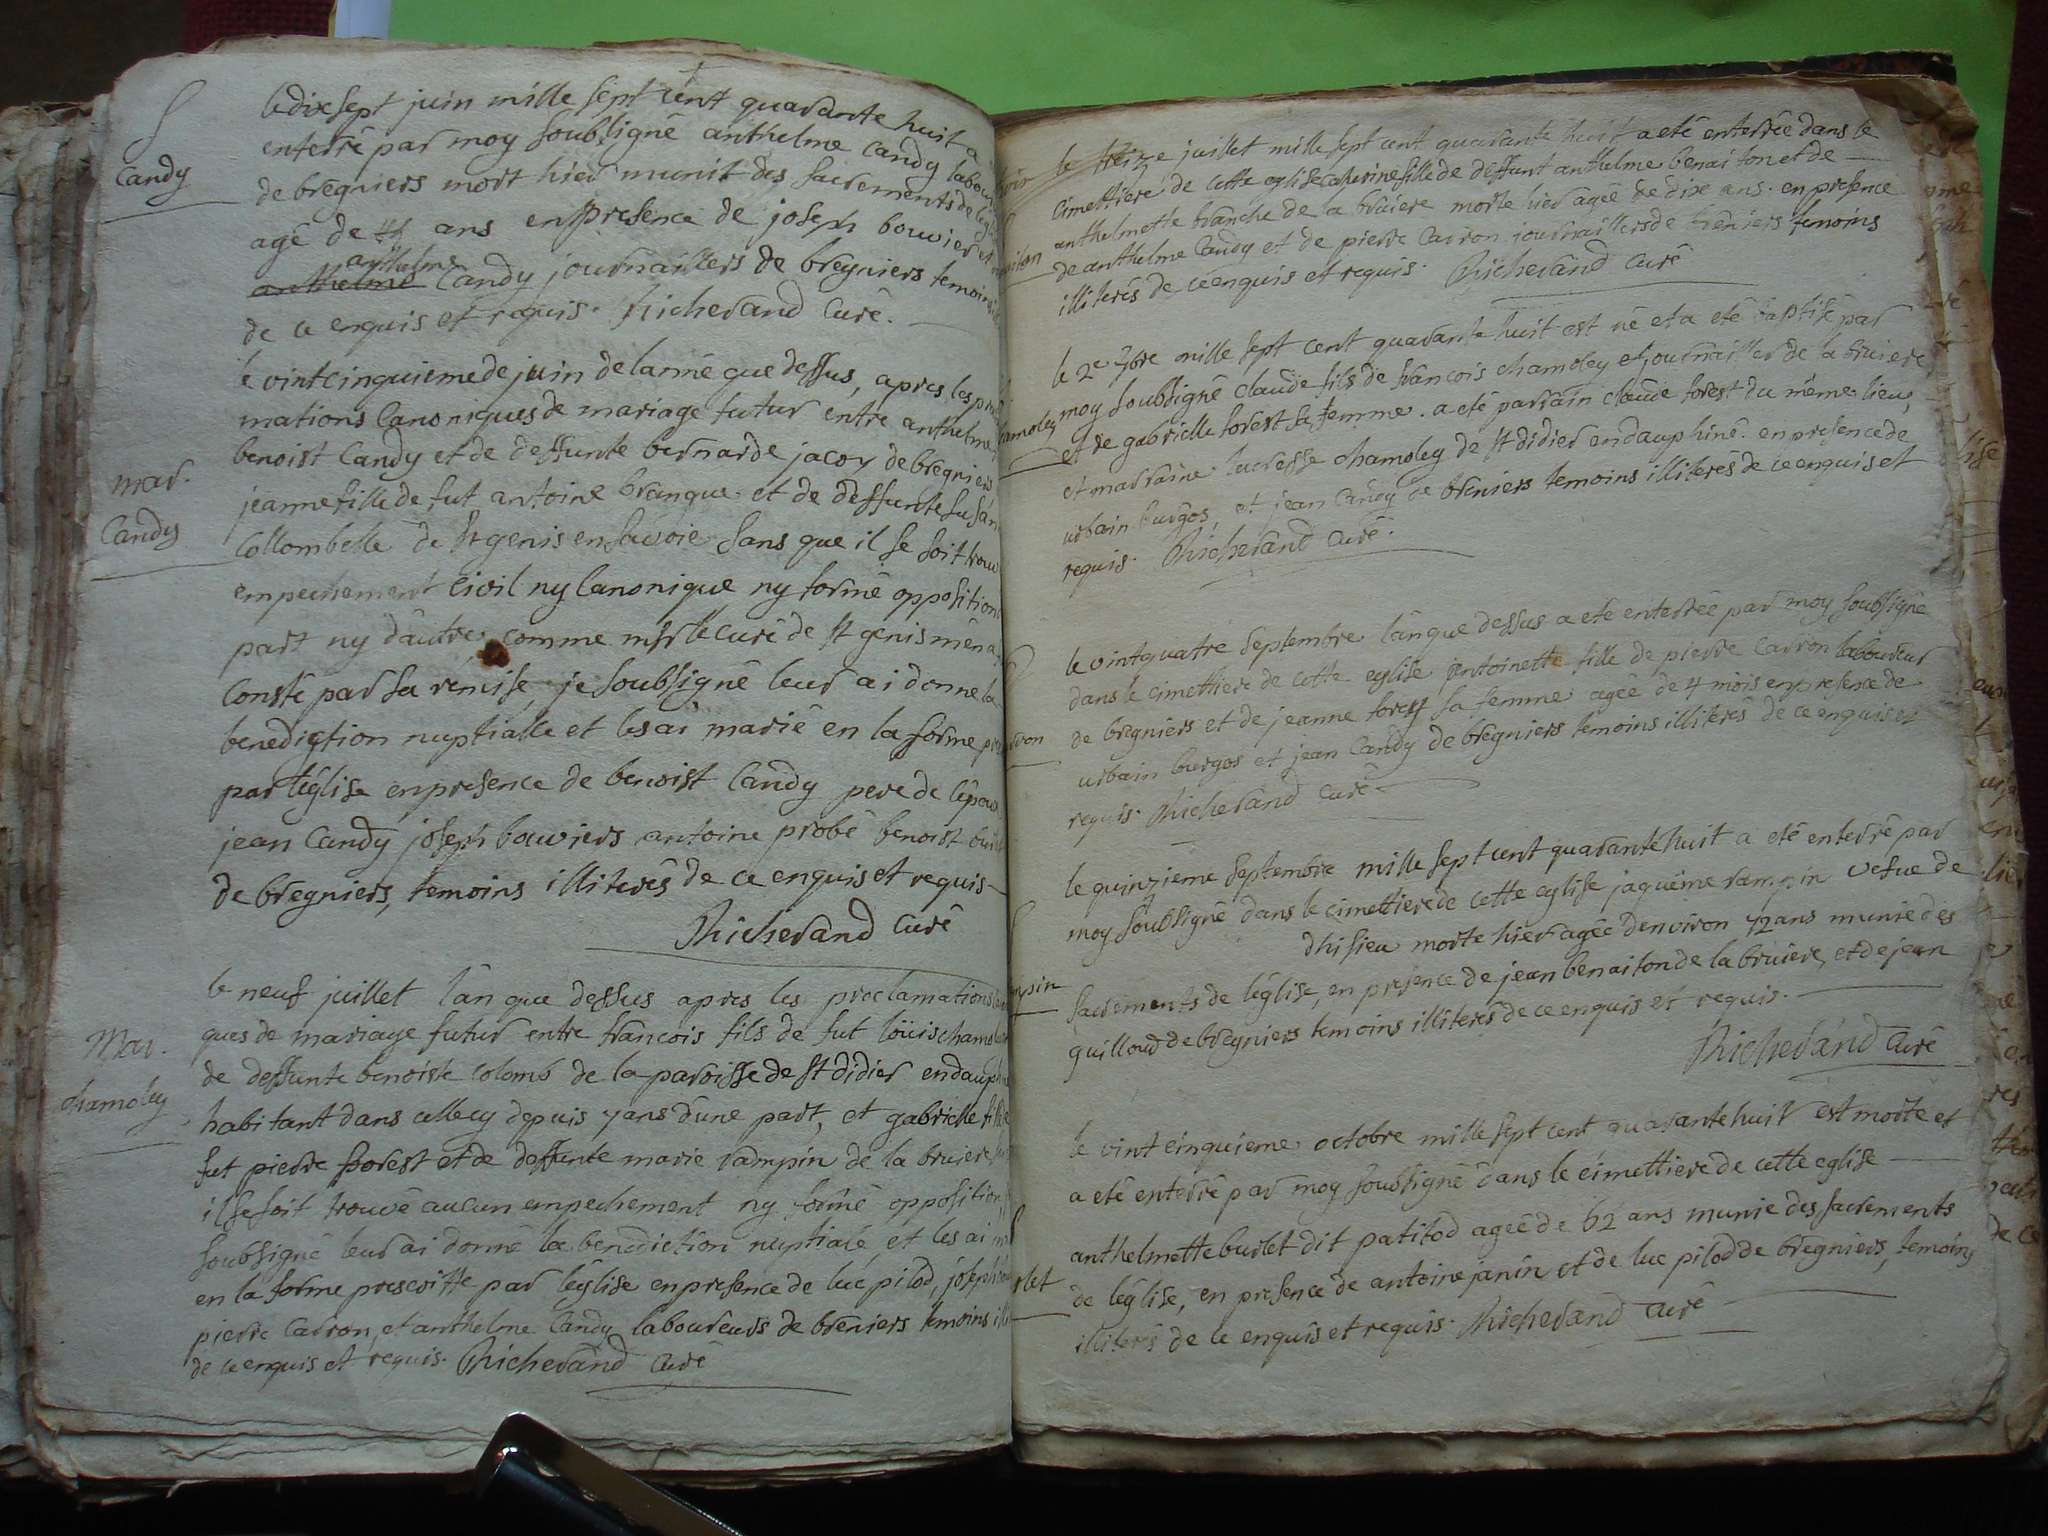 Candy
le dix sept juin mille sept cent quarante huit a
enterré par moy soubsigné anthelme candy labou
de bregniers mort hier munit des sacrements de l'eg
agé de ans en presence de joseph bouvier et
anthelme
anthelme Candy journailliers de bregniers temoins
de ce enquis et requis. Richerand Curé.
mar.
Candy
le vint cinquieme de juin de lanné que dessus, apres les pro
mations Canoniques de mariage futur entre anthelme
benoist Candy et de deffunte bernarde jacoz de bregniers
jeanne fille de fut antoine branque et de deffunte susan
Collombelle de st genis en savoie sans que il se soit trouv
empechement Civil ny Canonique ny formé opposition
part ny d'autre, comme mr le curé de st genis m'en a
consté par sa remise, je soubsigné leur ai donné la
benediction nuptialle et les ai marié en la forme pre
par l'église en presence de benoist Candy pere de l'epoux
jean Candy joseph bouviers antoine probé benoist
de bregniers, temoins illiterés de ce enquis et requis
Richerand Curé
Mar.
chamoley
le neuf juillet l'an que dessus apres les proclamations
ques de mariage futur entre francois fils de fut loüis chamo
de deffunte benoiste Colomb de la paroisse de st didier en dauph
habitant dans celle cy depuis 7 ans d'une part, et gabrielle fille
fut pierre forest et de deffunte marie rampin de la bruiere
il se soit trouvé aucun empechement ny formé opposition
soubsigné leur ai donné la benediction nuptiale et les ai
en la forme prescritte par l'église en presence de luc pilod, joseph
pierre Carron, et anthelme Candy laboureurs de breniers temoins ill
de ce enquis et requis. Richerand Curé
le treize juillet mille sept cent quarante huit a eté enterrée dans le
cimettiere de cette eglise catherine fille de deffunt anthelme benaiton et de
anthelmette branche de la bruiere morte hier agée de dix ans. en presence
de anthelme Candy et de pierre Carron journailliers de breniers temoins
illiterés de ce enquis et requis. Richerand Curé
amoley
le 2e 7bre mille sept cent quarante huit est né et a eté baptisé par
moy soubsigné claude fils de francois chamoley journaillier de la bruiere
et de gabrielle forest sa femme. a eté parrain claude forest du même lieu,
et marraine lucresse chamoley de st didier en dauphiné. en presence de
urbain burgos, et jean Candy de breniers temoins illiterés de ce enquis et
requis. Richerand Curé.
rron
le vint quatre septembre l'an que dessus a eté enterrée par moy soubsigné
dans le cimettiere de cette eglise antoinette fille de pierre Carron laboureur
de bregniers et de jeanne forest sa femme agée de 4 mois en presence de
urbain burgos et jean Candy de bregniers temoins illiterés de ce enquis et
requis. Richerand Curé
mpin
le quinzieme septembre mille sept cent quarante huit a eté enterré par
moy soubsigné dans le cimettiere de cette eglise jaquême rampin vefue de
dhisieu morte hier agée denviron 72 ans munie des
sacrements de l'église, en presence de jean benaiton de la bruiere, et de jean
guilloud de bregniers temoins illiterés de ce enquis et requis.
Richerand Curé
rlet
le vint cinquieme octobre mille sept cent quarante huit est morte et
a eté enterré par moy soubsigné dans le cimettiere de cette eglise
anthelmette burlet dit patitod ageé de 62 ans munie des sacrements
de l'église, en presence de antoine janin et de luc pilod de bregniers, temoins
illiterés de ce enquis et requis. Richerand Curé